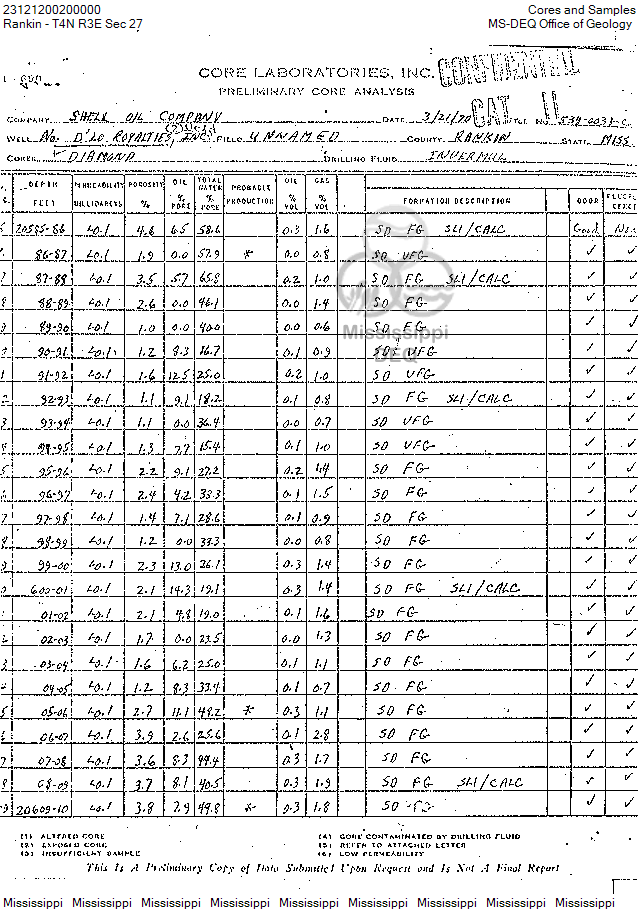 23121200200000 Cores and Samples
Rankin - T4N R3E Sec 27 MS-DEQ Office of Geology
CORE LABORATORIES, INC.
PRELIMINARY CORE ANALYSIS
CONFIDENTIAL
CAT II
COMPANY SHELL OIL COMPANY DATE 3/21/70 FILE NO.
WELL NO. D'LO ROYALTIES, INC. FIELD UNNAMED COUNTY RANKIN STATE MISS
CORES DIAMOND DRILLING FLUID INVERMUL
DEPTH FEET PERMEABILITY MILLIDARCYS POROSITY % OIL % PORE TOTAL WATER % PORE PROBABLE PRODUCTION OIL % VOL GAS % VOL FORMATION DESCRIPTION ODOR
20585-86 <0.1 4.8 6.5 58.6 0.3 1.6 SD FG SLI/CALC Good
86-87 <0.1 1.9 0.0 57.9 * 0.0 0.8 SD VFG ✓ ✓
87-88 <0.1 3.5 5.7 65.8 0.2 1.0 SD FG SLI/CALC ✓ ✓
88-89 <0.1 2.6 0.0 46.1 0.0 1.4 SD FG ✓ ✓
89-90 <0.1 1.0 0.0 40.0 0.0 0.6 SD FG ✓ ✓
90-91 <0.1 1.2 8.3 16.7 0.1 0.9 SD VFG ✓ ✓
91-92 <0.1 1.6 12.5 25.0 0.2 1.0 SD VFG ✓ ✓
92-93 <0.1 1.1 9.1 18.2 0.1 0.8 SD FG SLI/CALC ✓ ✓
93-94 <0.1 1.1 0.0 36.4 0.0 0.7 SD VFG ✓ ✓
94-95 <0.1 1.3 7.7 15.4 0.1 1.0 SD VFG ✓ ✓
95-96 <0.1 2.2 9.1 27.2 0.2 1.4 SD FG ✓ ✓
96-97 <0.1 2.4 4.2 33.3 0.1 1.5 SD FG ✓ ✓
97-98 <0.1 1.4 7.1 28.6 0.1 0.9 SD FG ✓ ✓
98-99 <0.1 1.2 0.0 33.3 0.0 0.8 SD FG ✓ ✓
99-00 <0.1 2.3 13.0 26.1 0.3 1.4 SD FG ✓ ✓
600-01 <0.1 2.1 14.3 19.1 0.3 1.4 SD FG SLI/CALC ✓ ✓
01-02 <0.1 2.1 4.8 19.0 0.1 1.6 SD FG ✓ ✓
02-03 <0.1 1.7 0.0 23.5 0.0 1.3 SD FG ✓ ✓
03-04 <0.1 1.6 6.2 25.0 0.1 1.1 SD FG ✓ ✓
04-05 <0.1 1.2 8.3 33.4 0.1 0.7 SD FG ✓ ✓
05-06 <0.1 2.7 11.1 48.2 * 0.3 1.1 SD FG ✓ ✓
06-07 <0.1 3.9 2.6 25.6 0.1 2.8 SD FG ✓ ✓
07-08 <0.1 3.6 8.3 44.4 0.3 1.7 SD FG ✓ ✓
08-09 <0.1 3.7 8.1 40.5 0.3 1.9 SD FG SLI/CALC ✓ ✓
20609-10 <0.1 3.8 7.9 44.8 * 0.3 1.8 SD FG ✓ ✓
Mississippi
DEQ
(1) ALTERED CORE (4) CORE CONTAMINATED BY DRILLING FLUID
(2) EXPOSED CORE (5) REFER TO ATTACHED LETTER
(3) INSUFFICIENT SAMPLE (6) LOW PERMEABILITY
This Is A Preliminary Copy of Data Submitted Upon Request and Is Not A Final Report
Mississippi Mississippi Mississippi Mississippi Mississippi Mississippi Mississippi Mississippi Mississippi